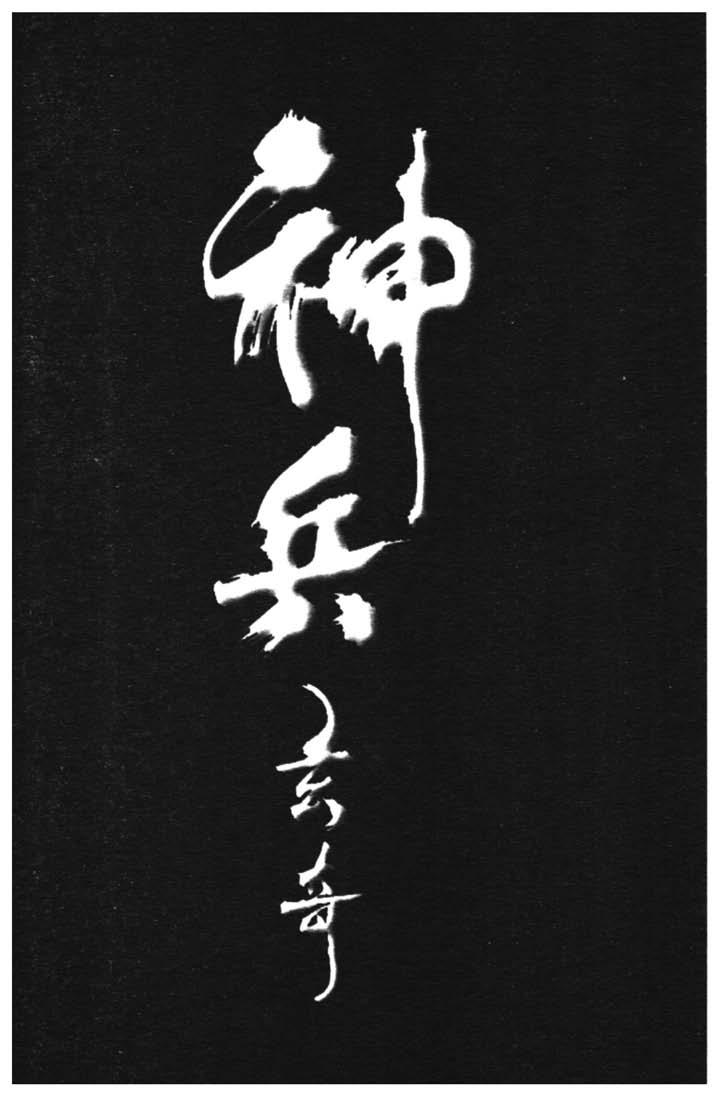 神兵玄奇